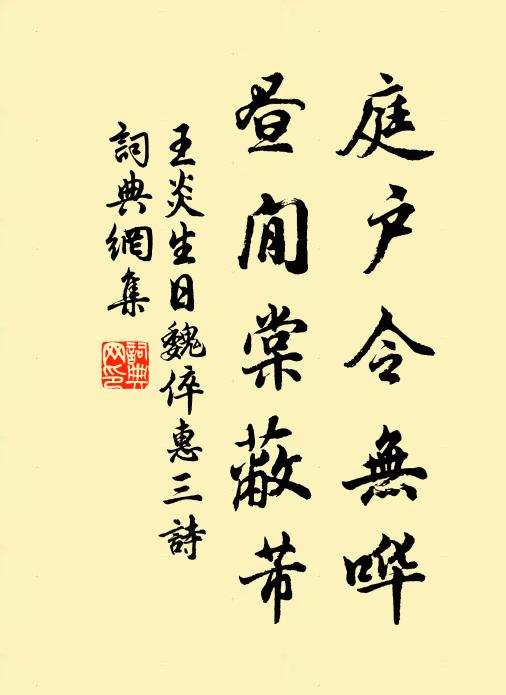 庭户令無哗
昼閒棠蔽芾
王炎生日魏倅惠三詩
詞典網集
詞典
网印